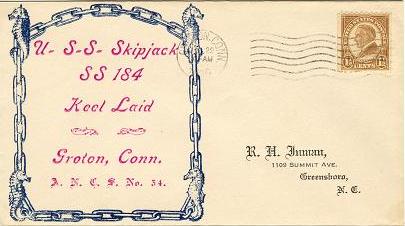 U-S-S- Skipjack
SS 184
Keel Laid
Groton, Conn.
A. N. C. S. No. 54.
CONN.
AM
1½ CENTS 1½
R. H. Inman,
1109 SUMMIT AVE.
Greensboro,
N. C.